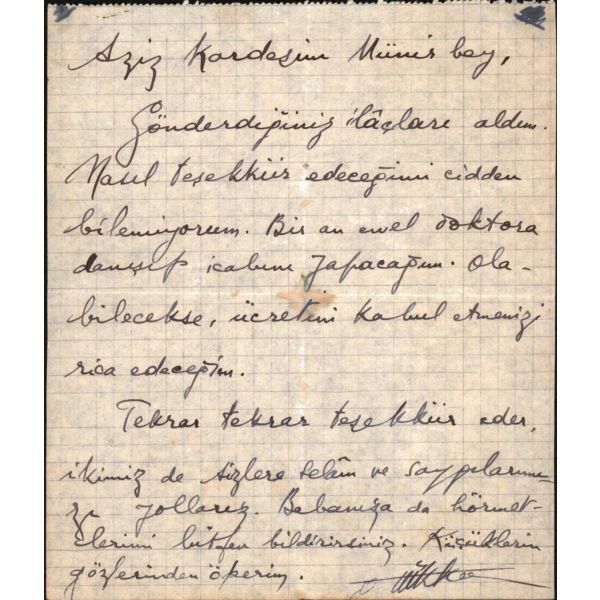 Aziz Kardeşim Münir bey,
Gönderdiğiniz ilâçları aldım.
Nasıl teşekkür edeceğimi cidden
bilemiyorum. Bir an evvel doktora
danışıp icabını yapacağım. Ola-
bilecekse, ücretini kabul etmenizi
rica edeceğim.
Tekrar tekrar teşekkür eder,
ikimiz de sizlere selâm ve saygılarımı-
zı yollarız. Babanıza da hörmet-
lerimi lütfen bildirirsiniz. Küçüklerin
gözlerinden öperim.